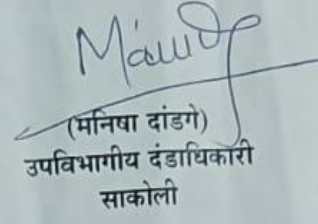 (मनिषा दांडगे)
उपविभागीय दंडाधिकारी
साकोली